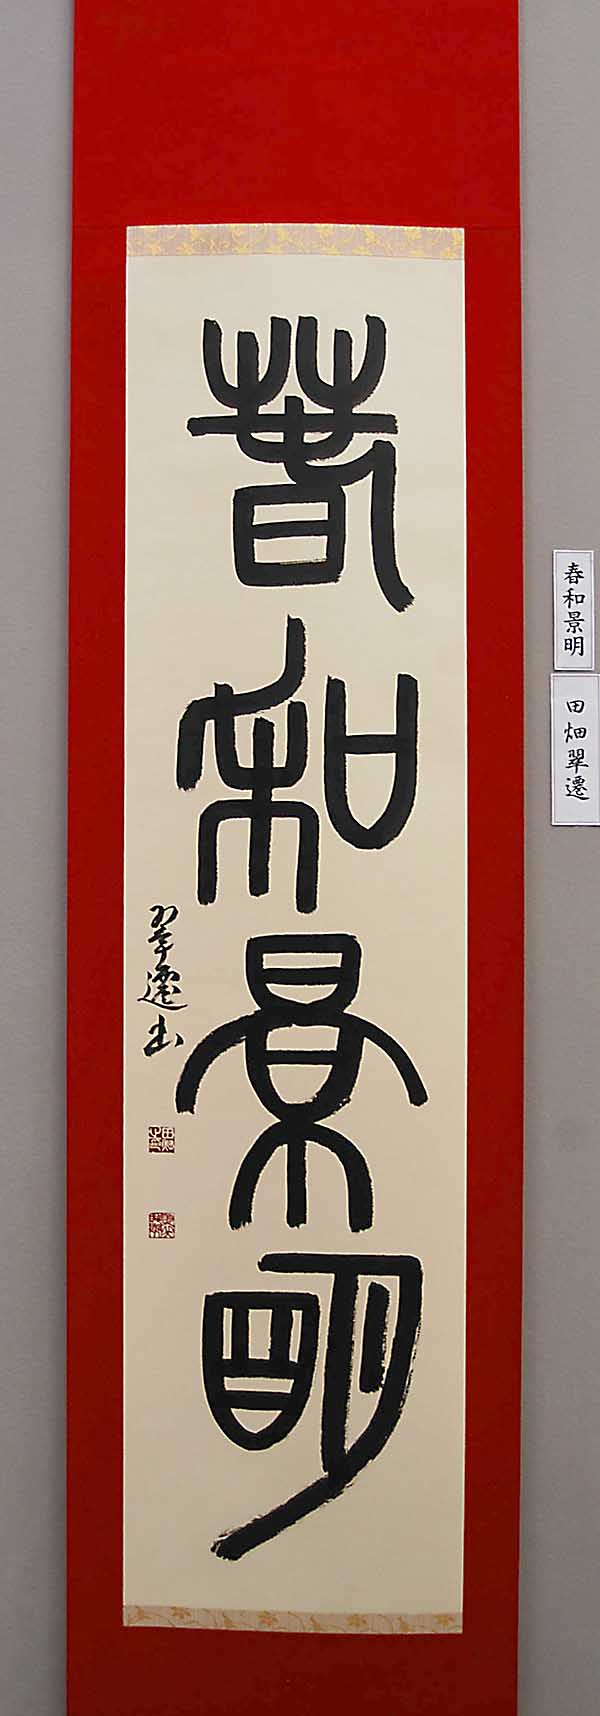 春和景明
翠遷書
春和景明
田畑翠遷